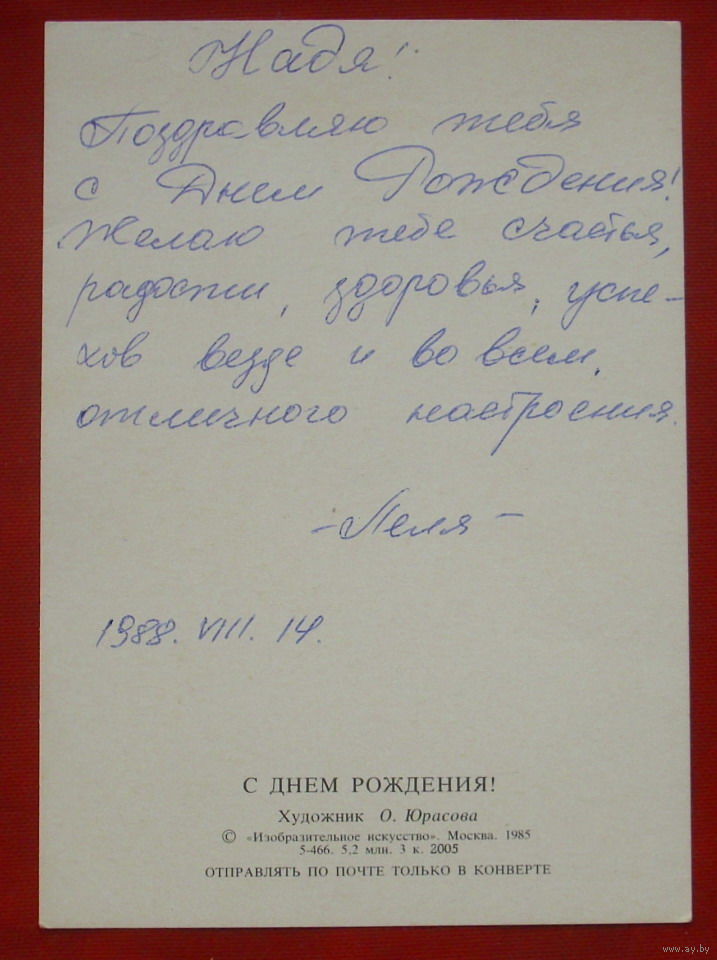 Надя!
Поздравляю тебя
с Днем Рождения!
Желаю тебе счастья,
радости, здоровья, успе-
хов везде и во всем,
отличного настроения.
- Леля -
1988. VIII. 14.
С ДНЕМ РОЖДЕНИЯ!
Художник О. Юрасова
© «Изобразительное искусство». Москва. 1985
5-466. 5,2 млн. 3 к. 2005
ОТПРАВЛЯТЬ ПО ПОЧТЕ ТОЛЬКО В КОНВЕРТЕ
www.ay.by